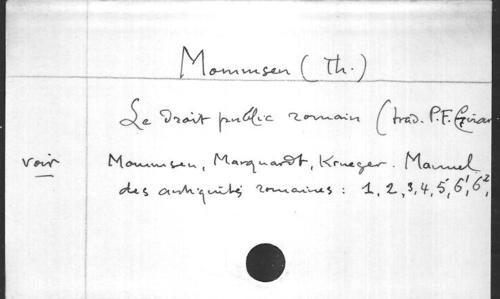 Mommsen (Th.)
Le Droit public romain (trad. P.F. Girar
voir Mommsen, Marquardt, Krueger. Manuel
des antiquités romaines : 1, 2, 3, 4, 5, 6¹, 6²,